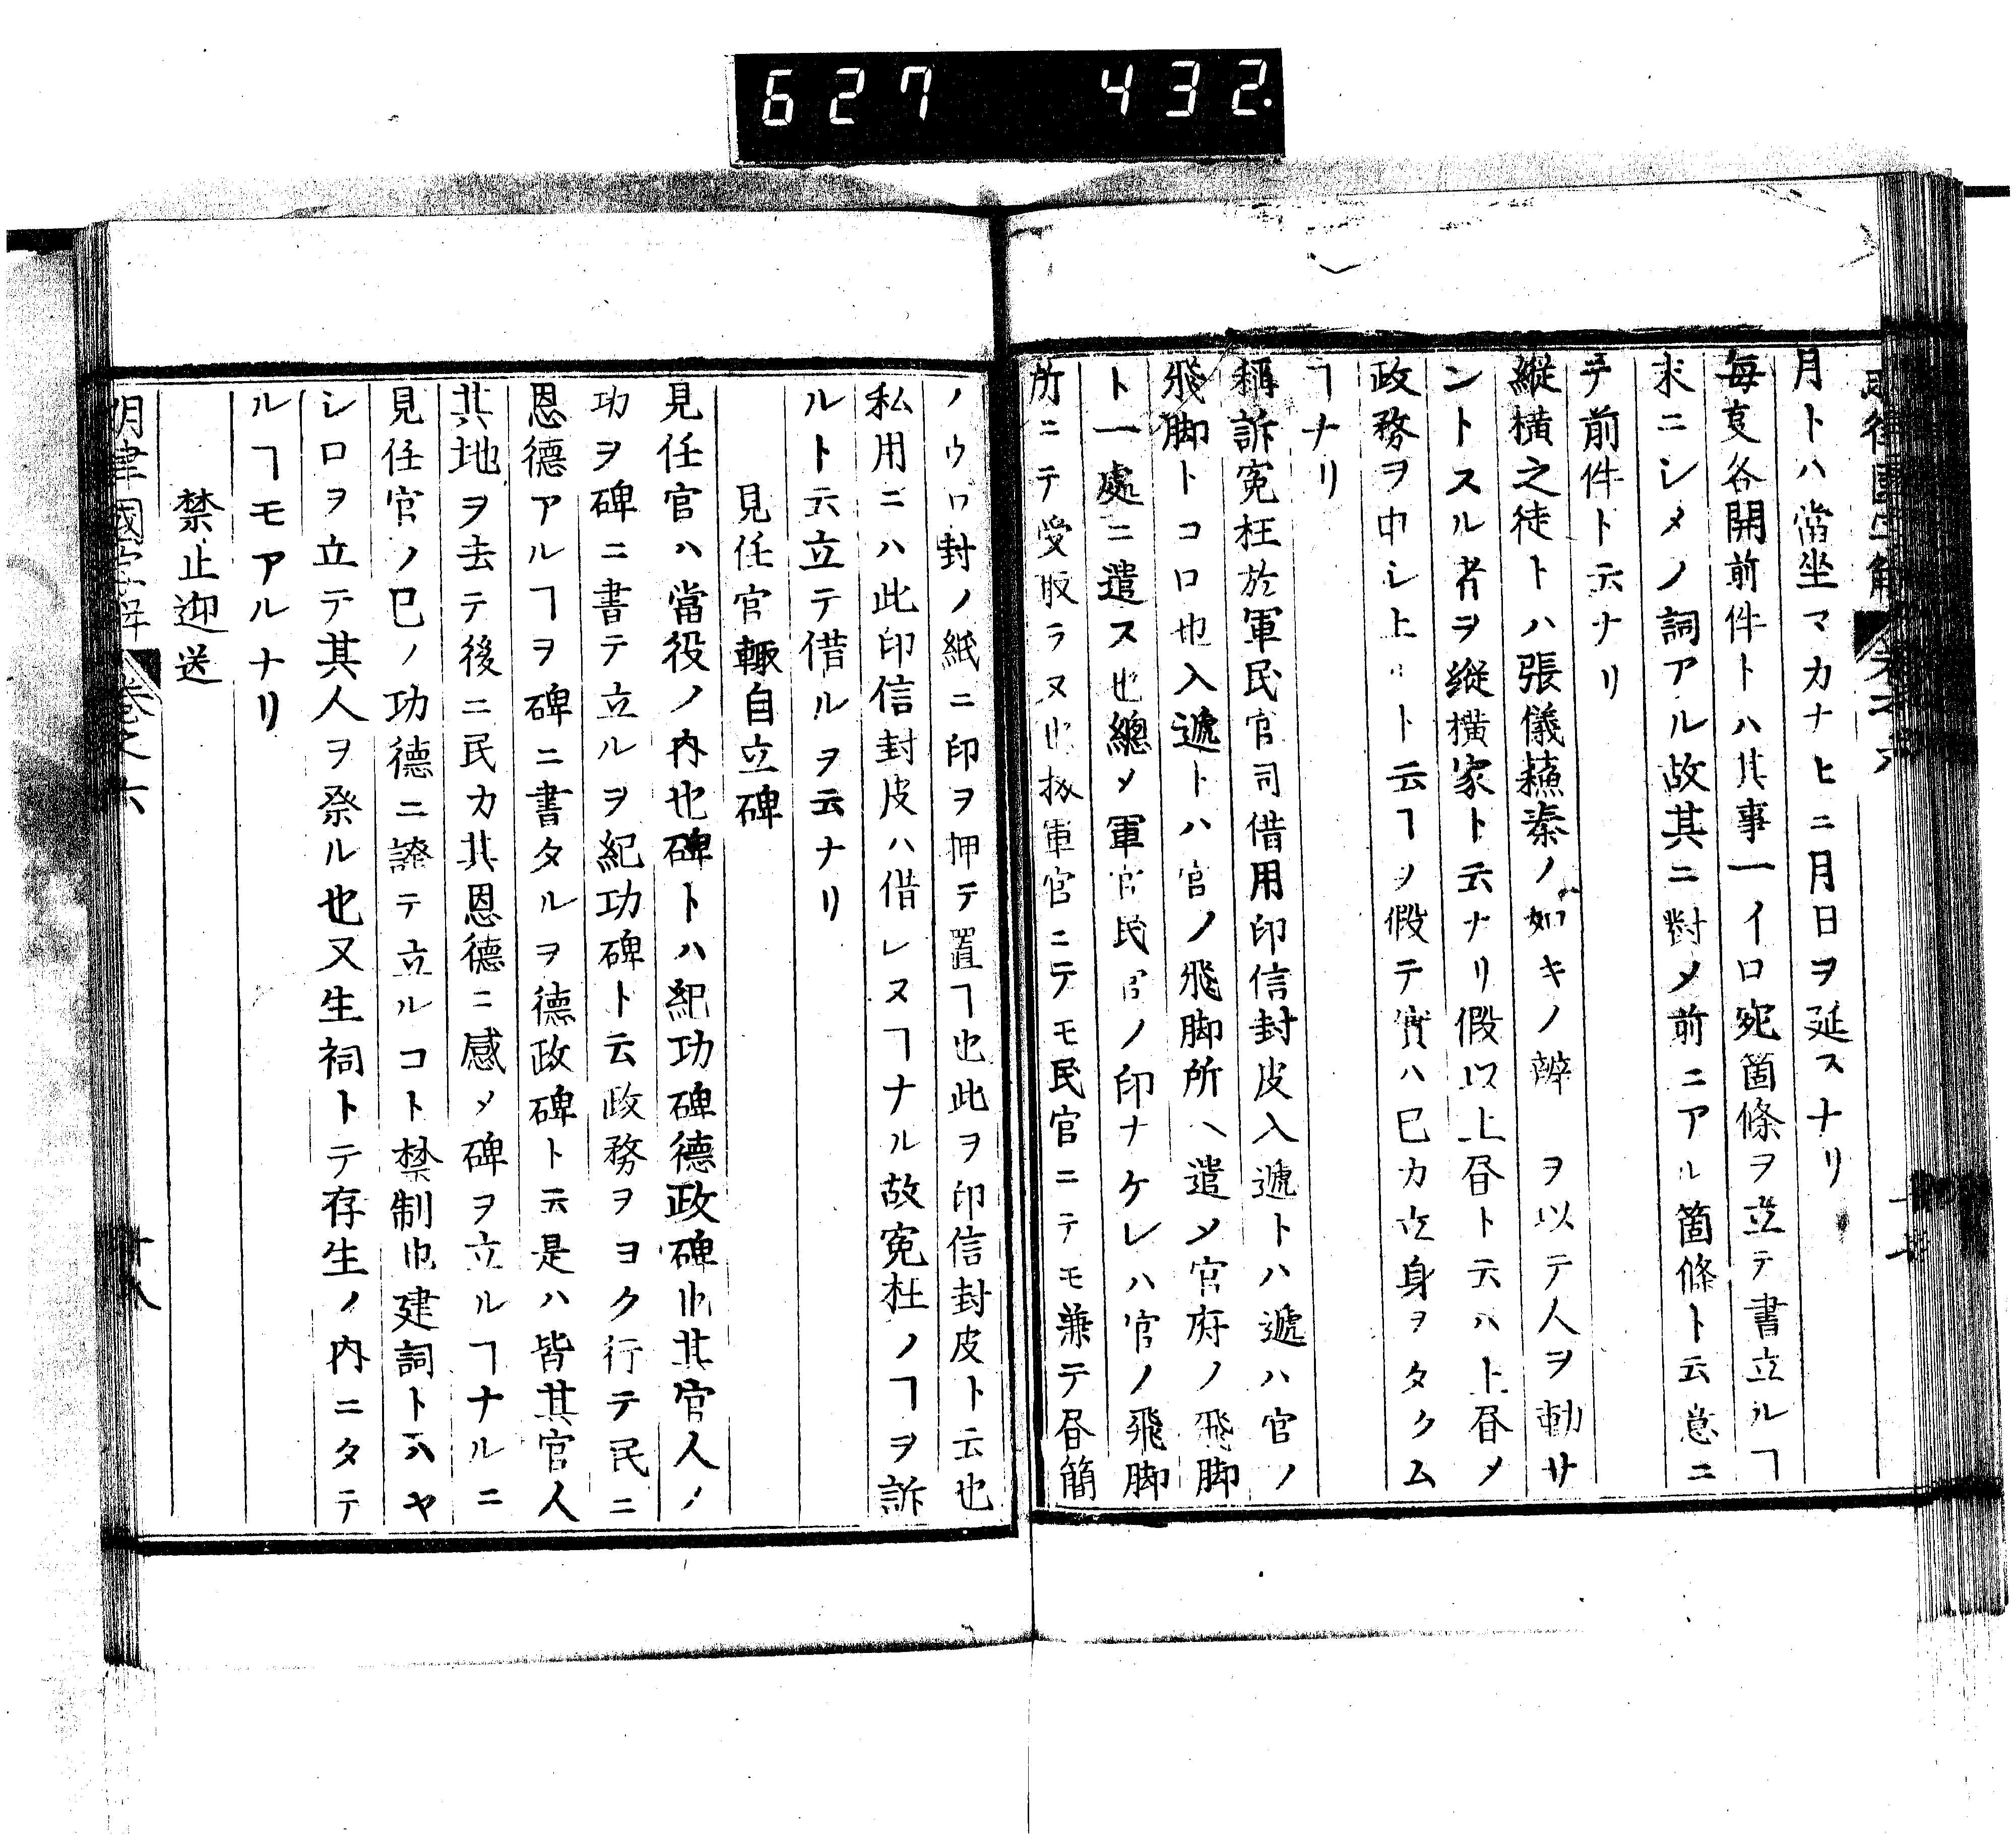 627 432.
月トハ當坐マカナヒニ月日ヲ延スナリ
每㕝各開前件トハ其事一イロ宛箇條ヲ立テ書立ルヿ
末ニシメノ詞アル故其ニ對メ前ニアル箇條ト云意ニ
テ前件ト云ナリ
縱橫之徒トハ張儀蘇秦ノ如キノ辯ヲ以テ人ヲ動サ
ントスル者ヲ縱橫家ト云ナリ假以上昼ト云ハ上昼メ
政務ヲ申シ上ルト云フヿヲ假テ實ハ己カ立身ヲタクム
ヿナリ
稱訴冤枉於軍民官司借用印信封皮入遞トハ遞ハ官ノ
飛脚トコロ也入遞トハ官ノ飛脚所ヘ遣メ官府ノ飛脚
ト一處ニ遣ス也總メ軍官民官ノ印ナケレハ官ノ飛脚
所ニテ受取ラヌ也扨軍官ニテモ民官ニテモ兼テ昼簡
ノウハ封ノ紙ニ印ヲ押テ置ヿ也此ヲ印信封皮ト云也
私用ニハ此印信封皮ハ借レヌヿナル故冤枉ノヿヲ訴
ルト云立テ借ルヲ云ナリ
見任官輙自立碑
見任官ハ當役ノ內也碑トハ紀功碑德政碑也其官人ノ
功ヲ碑ニ書テ立ルヲ紀功碑ト云政務ヲヨク行テ民ニ
恩德アルヿヲ碑ニ書タルヲ德政碑ト云是ハ皆其官人
其地ヲ去テ後ニ民カ其恩德ニ感メ碑ヲ立ルヿナルニ
見任官ノ己ノ功德ニ誇テ立ルコト禁制也建祠トハヤ
シロヲ立テ其人ヲ祭ル也又生祠トテ存生ノ內ニタテ
ルヿモアルナリ
禁止迎送
明律國字解 卷之六